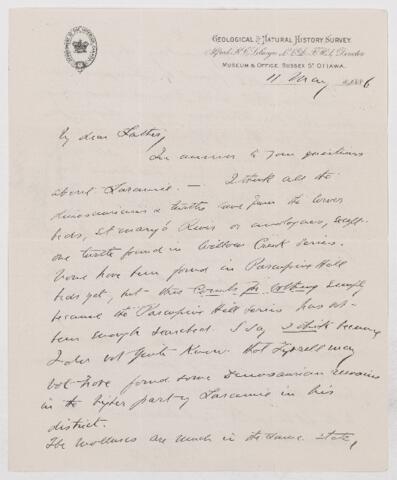 GEOLOGICAL & NATURAL HISTORY SURVEY.
Alfred R. C. Selwyn, L.L.D. F.R.S. Director
MUSEUM & OFFICE SUSSEX ST OTTAWA.
11 May 1886
My dear Father,
In answer to your questions
about Laramie. — I think all the
dinosaurians & turtles came from the lower
beds, St Mary's River or analogous, except
one turtle found in Willow Creek series.
None have been found in Porcupine Hill
beds yet, but this counts for nothing simply
because the Porcupine Hill series has not
been enough searched. I say I think because
I do not quite know that Tyrrell may
not have found some Dinosaurian remains
in the higher part of Laramie in his
district.
The molluscs are much in the same state,